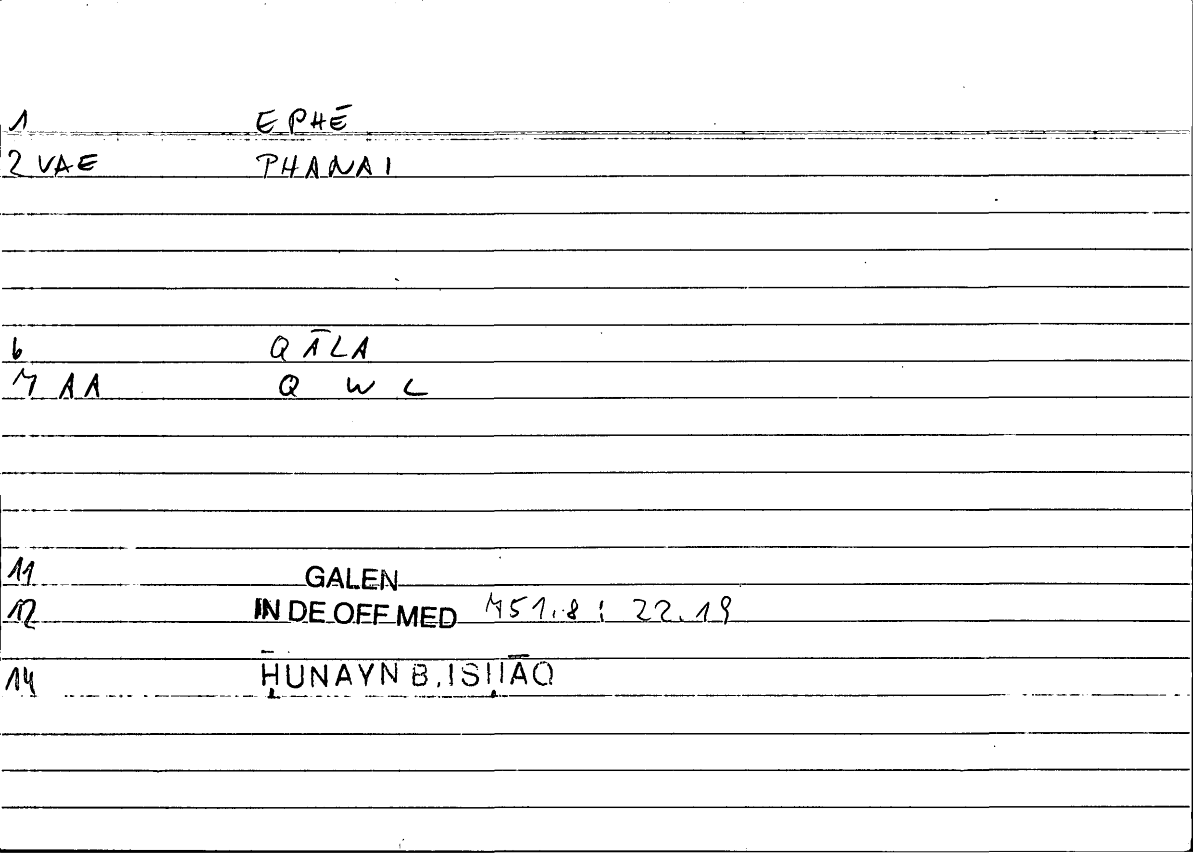 1 EPHĒ
2 VAE PHANAI
6 QĀLA
7 AA Q W L
11 GALEN
12 IN DE OFF MED 751.8 : 22.19
14 ḤUNAYN B. ISḤĀQ